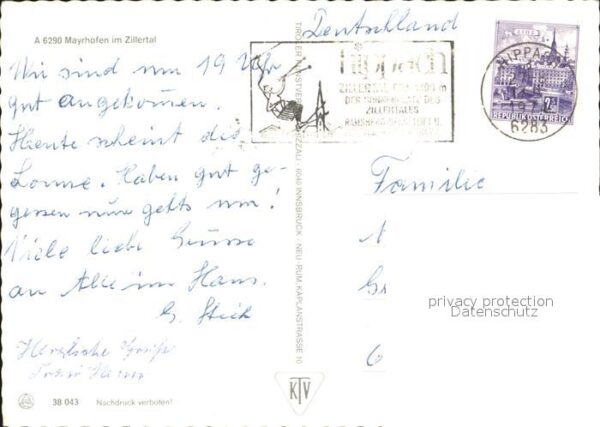 Deutschland
A 6290 Mayrhofen im Zillertal
Wir sind um 19 Uhr
gut angekommen.
Heute scheint die
Sonne. Haben gut ge-
gessen nun gehts um!
Viele liebe Grüsse
an Alle im Haus.
G.
Herzliche Grüße
hippach
ZILLERTAL
DES
ZILLERTALES
HIPPACH
6283
2
REPUBLIK ÖSTERREICH
Familie
N
Gr
6
privacy protection
Datenschutz
6040 INNSBRUCK - NEU RUM, KAPLANSTRASSE 10
KTV
38 043 Nachdruck verboten!